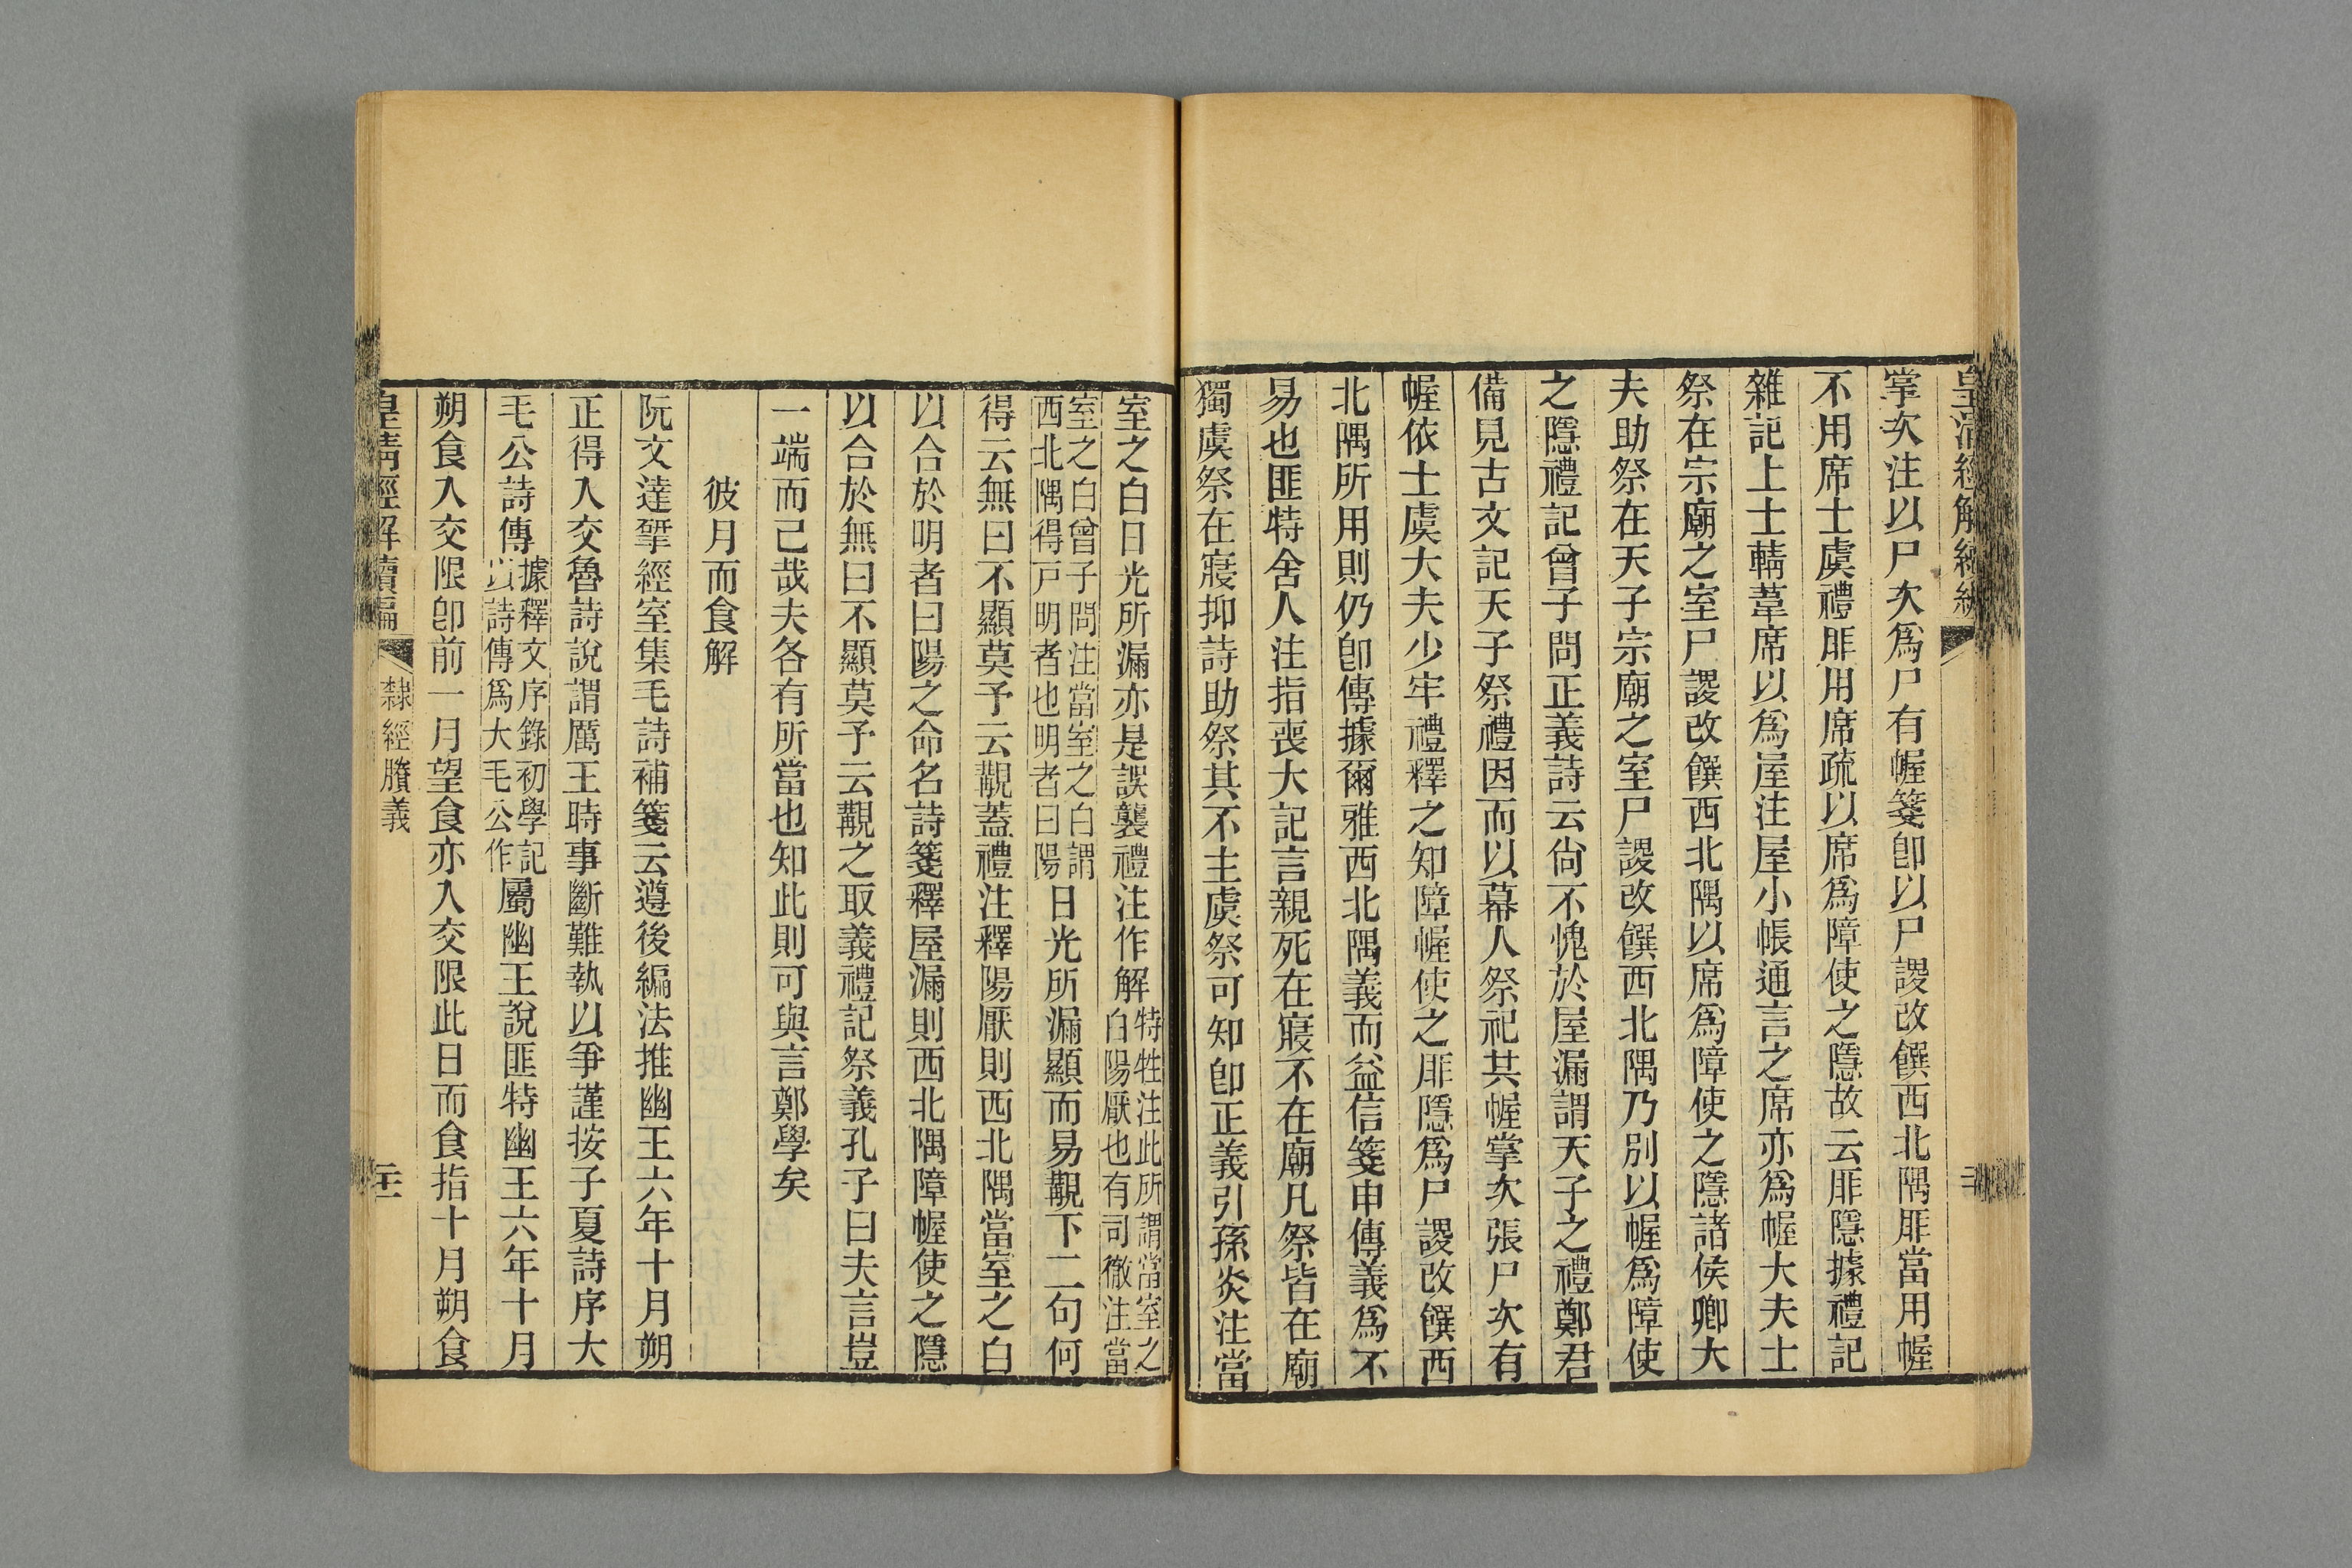 掌次注以尸次爲尸有幄箋卽以尸謖改饌西北隅厞當用幄
不用席士虞禮厞用席疏以席爲障使之隱故云厞隱據禮記
雜記上士輤葦席以爲屋注屋小帳通言之席亦爲幄大夫士
祭在宗廟之室尸謖改饌西北隅以席爲障使之隱諸侯卿大
夫助祭在天子宗廟之室尸謖改饌西北隅乃別以幄爲障使
之隱禮記曾子問正義詩云尙不愧於屋漏謂天子之禮鄭君
備見古文記天子祭禮因而以幕人祭祀共幄掌次張尸次有
幄依士虞大夫少牢禮釋之知障幄使之厞隱爲尸謖改饌西
北隅所用則仍卽傳據爾雅西北隅義而益信箋申傳義爲不
易也匪特舍人注指喪大記言親死在寢不在廟凡祭皆在廟
獨虞祭在寢抑詩助祭其不主虞祭可知卽正義引孫炎注當
室之白日光所漏亦是誤襲禮注作解特牲注此所謂當室之白陽厭也有司徹注當
室之白曾子問注當室之白謂西北隅得戸明者也明者曰陽日光所漏顯而易觏下二句何
得云無曰不顯莫予云覯蓋禮注釋陽厭則西北隅當室之白
以合於明者曰陽之命名詩箋釋屋漏則西北隅障幄使之隱
以合於無曰不顯莫予云覯之取義禮記祭義孔子曰夫言豈
一端而已哉夫各有所當也知此則可與言鄭學矣
彼月而食解
阮文達揅經室集毛詩補箋云遵後編法推幽王六年十月朔
正得入交魯詩說謂厲王時事斷難執以爭謹按子夏詩序大
毛公詩傳據釋文序錄初學記以詩傳爲大毛公作屬幽王說匪特幽王六年十月
朔食入交限卽前一月望食亦入交限此日而食指十月朔食
皇淸經解續編
隸經賸義